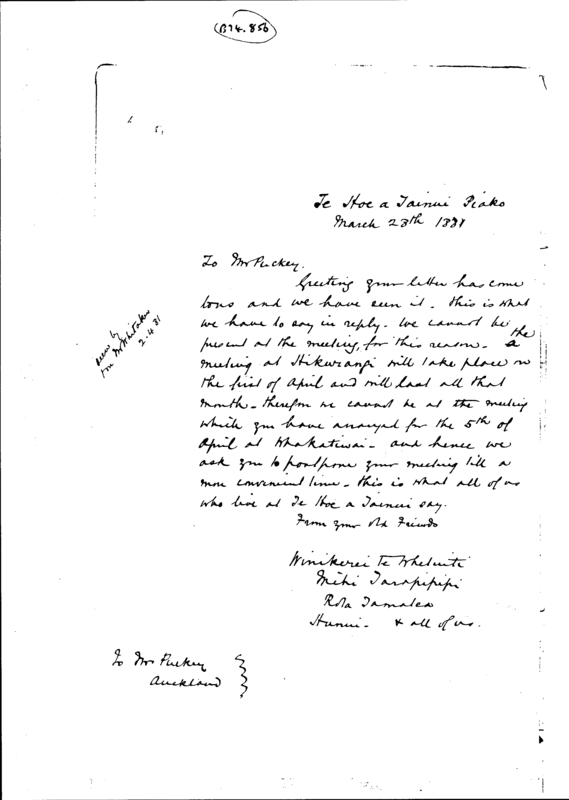 (B74.856)
Te Hoe a Tainui Piako
March 23th 1881
To Mr Puckey.
Greeting your letter has come
to us and we have seen it. this is what
we have to say in reply. We cannot be
present at the meeting, for this reason. the
a meeting at Hikurangi will take place on
the first of April and will last all that
month - therefore we cannot be at the meeting
which you have arranged for the 5th of
April at Whakatiwai - and hence we
ask you to postpone your meeting till a
more convenient time - this is what all of us
who live at Te Hoe a Tainui say.
From your old Friends
Winikerei Te Whetuiti
Mihi Tarapipipi
Rota
Hunui - & all of us.
To Mr Puckey
Auckland
seen by
Hon Mr Whitaker
2.4.81